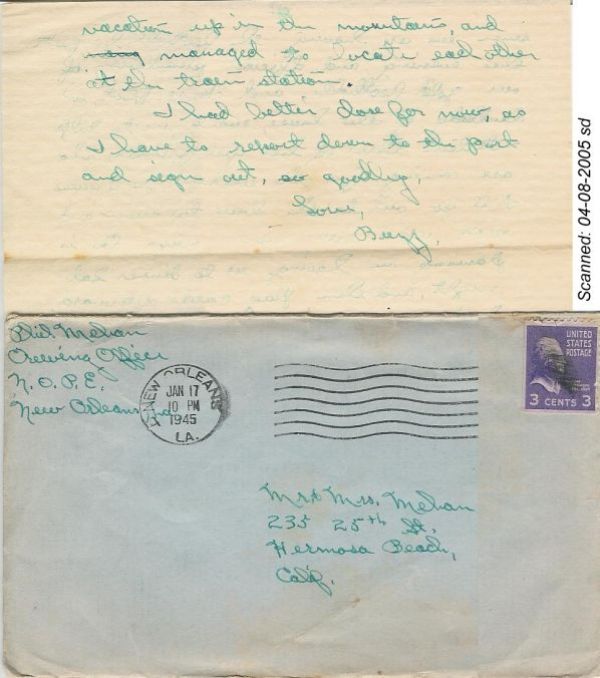 vacation up in the mountains, and
managed to locate each other
at the train station.
I had better close for now, as
I have to report down to the port
and sign out, so goodby,
Love,
Buzz,
Scanned: 04-08-2005 sd
Phil Mehan
Crewing Office
N.O.P.E.
New Orleans
NEW ORLEANS
JAN 17
10 PM
1945
LA.
UNITED
STATES
POSTAGE
3 CENTS 3
Mr & Mrs. Mehan
235 25th St.
Hermosa Beach,
Calif.